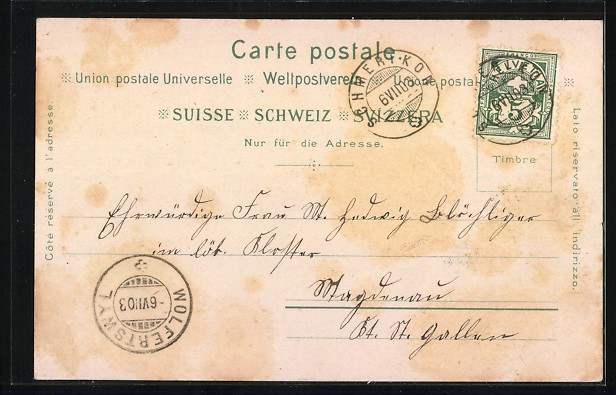 Carte postale
Union postale Universelle Weltpostverein Unione postale
SUISSE SCHWEIZ SVIZZERA
Nur für die Adresse.
Côté réservé à l'adresse.
Lato riservato all' indirizzo.
Timbre
HELVETIA
5
6 VII 03
WOLFERTSWYL
-6 VII 03
Ehrwürdige Frau M. Hedwig Blöchliger
im löb. Kloster
Magdenau
Kt. St. Gallen